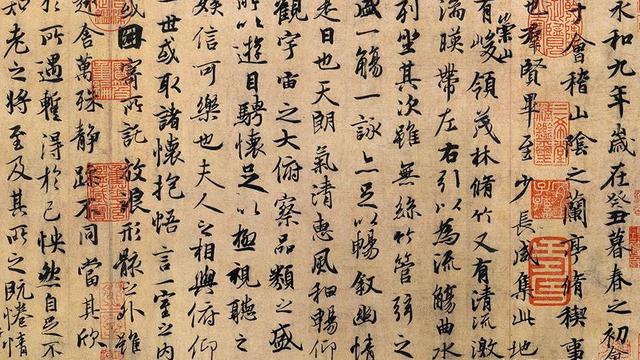 永和九年歲在癸丑暮春之初會
于會稽山陰之蘭亭脩稧事
也群賢畢至少長咸集此地
有崇山峻領茂林脩竹又有清流激
湍暎帶左右引以為流觴曲水
列坐其次雖無絲竹管弦之
盛一觴一詠亦足以暢敘幽情
是日也天朗氣清惠風和暢仰
觀宇宙之大俯察品類之盛
所以遊目騁懷足以極視聽之
娛信可樂也夫人之相與俯仰
一世或取諸懷抱悟言一室之內
或因寄所託放浪形骸之外雖
趣舍萬殊靜躁不同當其欣
於所遇暫得於己怏然自足不
知老之將至及其所之既惓情